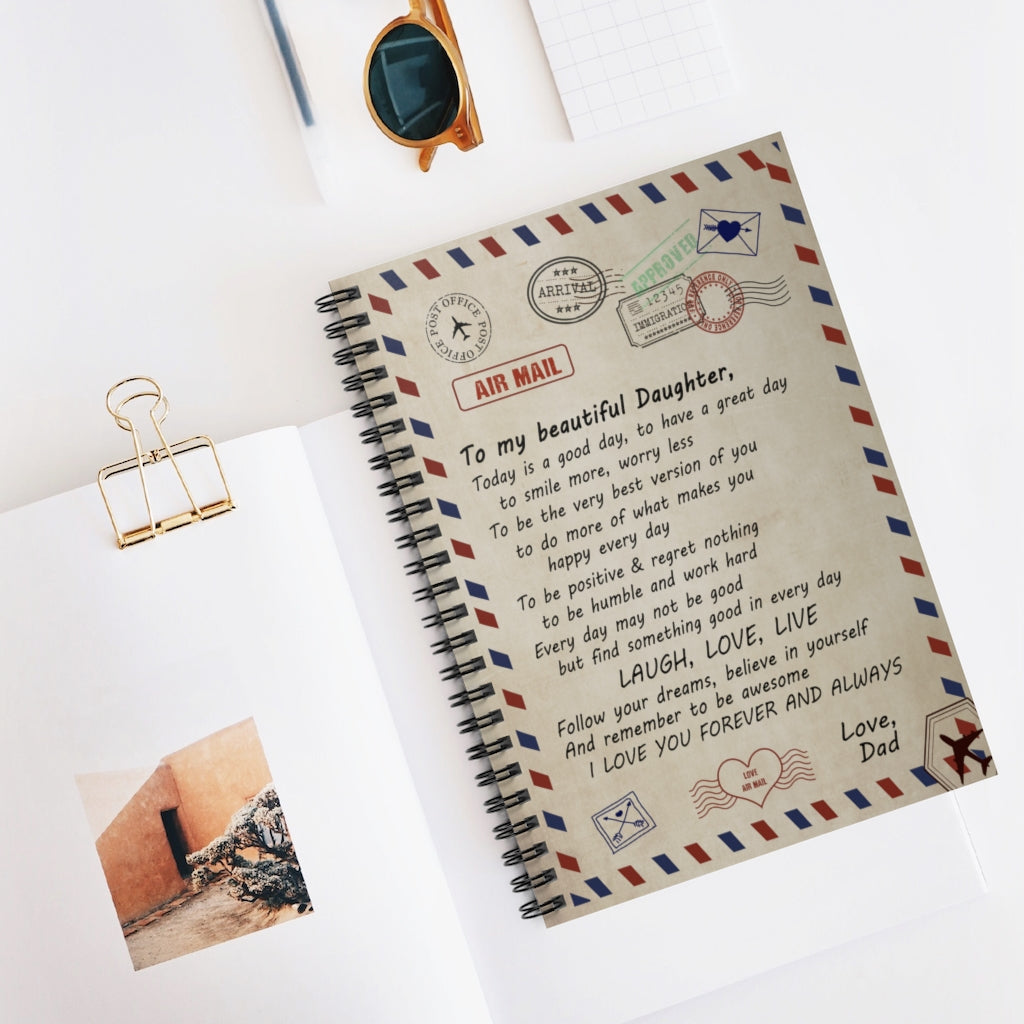 POST OFFICE POST OFFICE
ARRIVAL
APPROVED
12345
IMMIGRATION
AIR MAIL
To my beautiful Daughter,
Today is a good day, to have a great day
to smile more, worry less
To be the very best version of you
to do more of what makes you
happy every day
To be positive & regret nothing
to be humble and work hard
Every day may not be good
but find something good in every day
LAUGH, LOVE, LIVE
Follow your dreams, believe in yourself
And remember to be awesome
I LOVE YOU FOREVER AND ALWAYS
Love,
Dad
LOVE
AIR MAIL